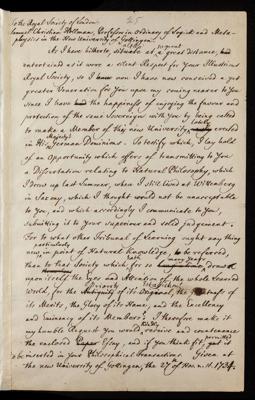 To the Royal Society of London
Samuel Christian Hollman, Professor in Ordinary of Logick and Meta-
physics in the New University of Gottingen.
As I have hitherto, situate at a great distance,
entertained as it were a silent Respect for your Illustrious
Royal Society, so I now I have now conceived a yet
greater Veneration for you upon my coming nearer to you
since I have had the happiness of enjoying the favour and
protection of the same Sovereign with you by being called
to make a Member of this new University, lately erected
in His Majesty's German Dominions. To testify which, I lay hold
of an Opportunity which offers of transmitting to you
a Dissertation relating to Natural Philosophy, which
I drew up last Summer, when I still lived at Wittenberg
in Saxony, which I thought would not be unacceptable
to You, and which accordingly I communicate to You,
submitting it to your superiour and solid judgement.
For to what other Tribunal of Learning ought any thing
new, particularly in point of Natural Knowledge, to be referred,
than to that Society which for so many Years hath drawn
upon itself the Eyes and Attention of the whole Learned
World, for the of its
its Merits, the Glory of its Name, and the Excellency
and Eminency of its Members? I therefore make it
my humble Request you would kindly receive and countenance
the enclosed Essay, and if you think fit, permit it
to be inserted in your Philosophical Transactions. Given at
the new University of Gottingen, the 27th of Nov. 1734.